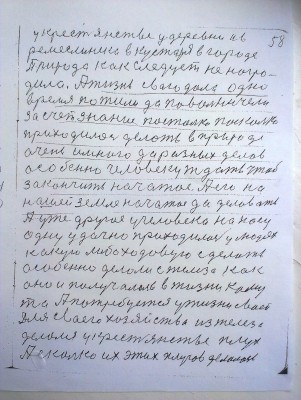 58
укрестьянства удеревни ав
ремесленника вкустаря вгороде
Природа как следует не наро-
дила. Ажизнь своего дала одно
время потили да поволничели
Засчет знание постолко посколко
приходилося делоть в природе
очень имного даразных делов
особенно человеку ждать чтоб
закончить начатое. Аего на
нашей земле начато да деловать
Ауте другое учеловека на носу
одну удачно приходилос улюдях
какую либо ходовую сделать
особенно делоли с телиза как
оно и получалось вжизни кому
то Апотребуется ужизни своей
для своего хозяйства изжелеза
делоли укрестьянства плуг
Асколко их этих плугов делолось